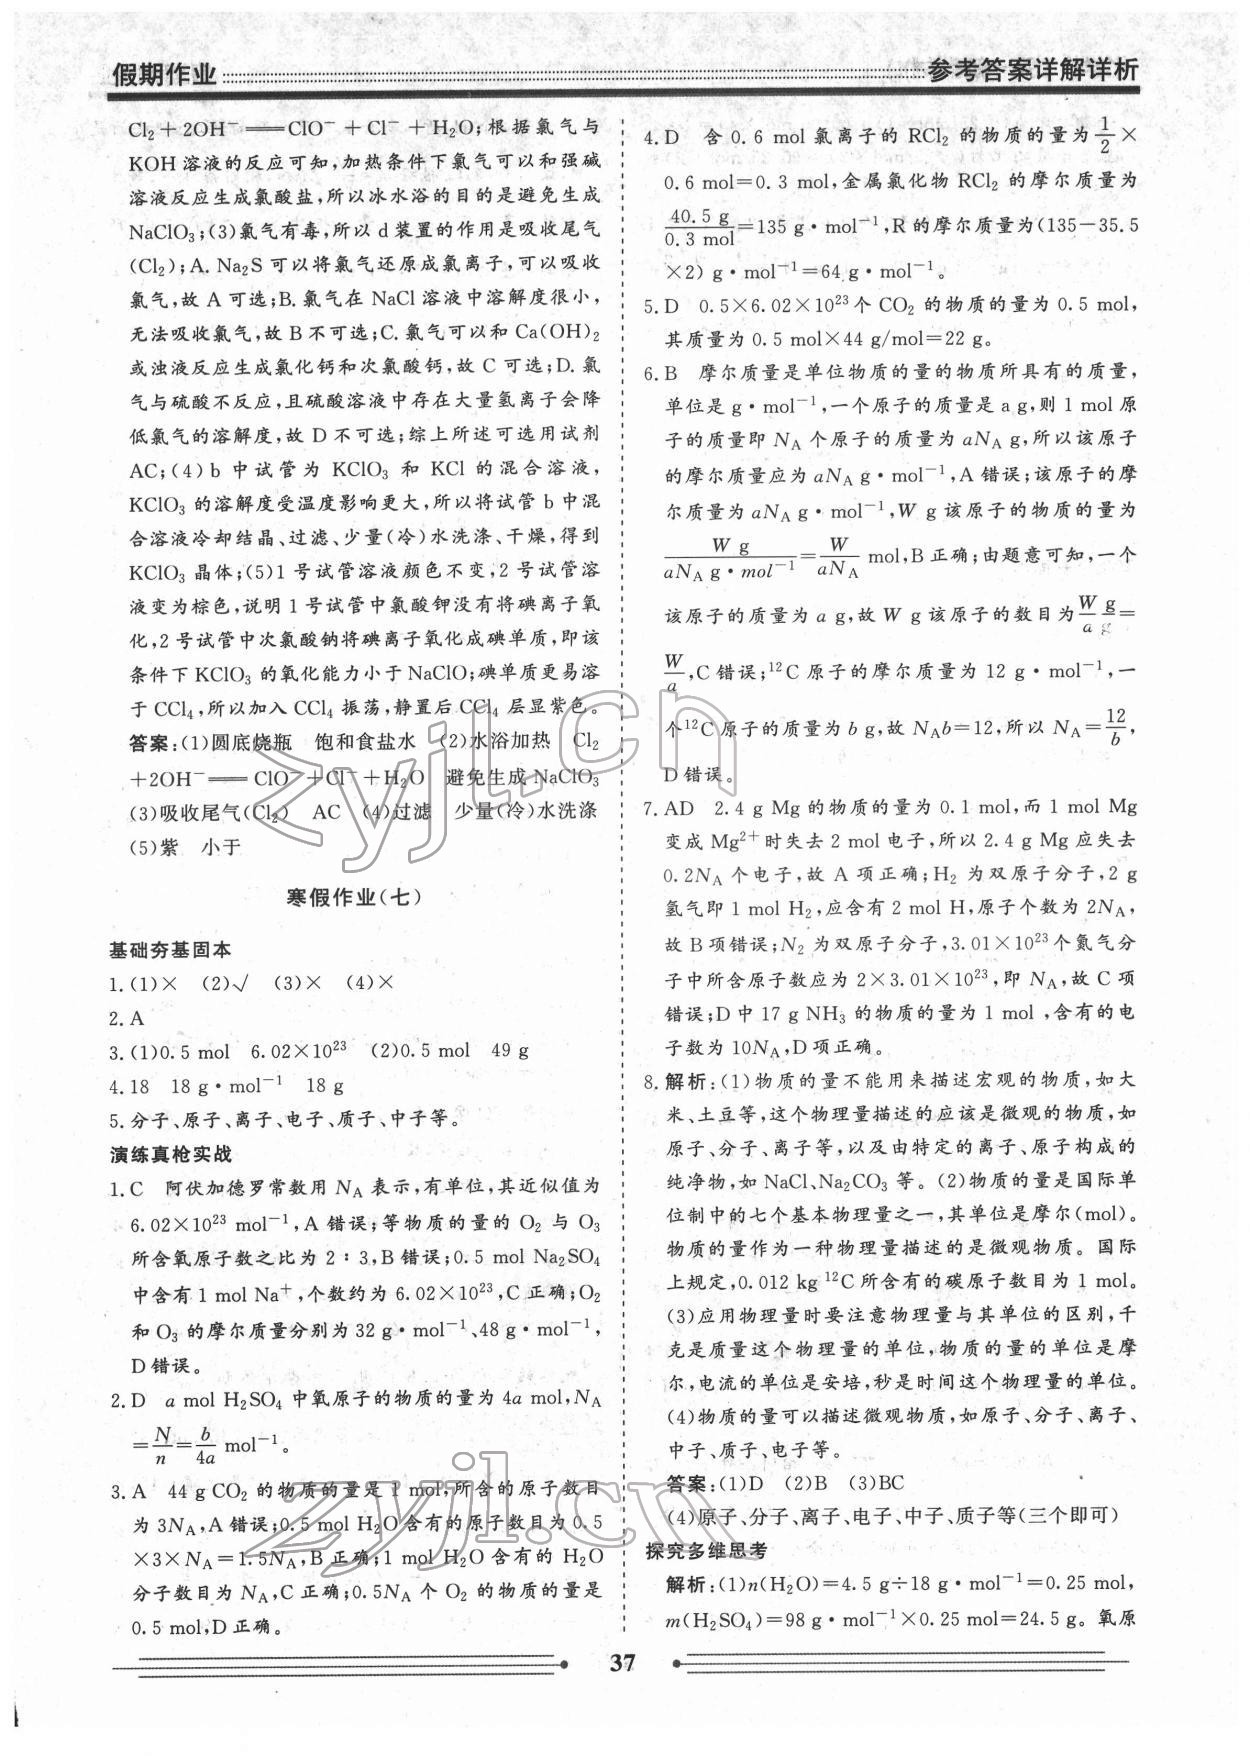 假期作业
参考答案详解详析
Cl₂+2OH⁻══ClO⁻+Cl⁻+H₂O;根据氯气与
KOH溶液的反应可知,加热条件下氯气可以和强碱
溶液反应生成氯酸盐,所以冰水浴的目的是避免生成
NaClO₃;(3)氯气有毒,所以d装置的作用是吸收尾气
(Cl₂);A.Na₂S可以将氯气还原成氯离子,可以吸收
氯气,故A可选;B.氯气在NaCl溶液中溶解度很小,
无法吸收氯气,故B不可选;C.氯气可以和Ca(OH)₂
或浊液反应生成氯化钙和次氯酸钙,故C可选;D.氯
气与硫酸不反应,且硫酸溶液中存在大量氢离子会降
低氯气的溶解度,故D不可选;综上所述可选用试剂
AC;(4)b中试管为KClO₃和KCl的混合溶液,
KClO₃的溶解度受温度影响更大,所以将试管b中混
合溶液冷却结晶、过滤、少量(冷)水洗涤、干燥,得到
KClO₃晶体;(5)1号试管溶液颜色不变,2号试管溶
液变为棕色,说明1号试管中氯酸钾没有将碘离子氧
化,2号试管中次氯酸钠将碘离子氧化成碘单质,即该
条件下KClO₃的氧化能力小于NaClO;碘单质更易溶
于CCl₄,所以加入CCl₄振荡,静置后CCl₄层显紫色。
答案:(1)圆底烧瓶 饱和食盐水 (2)水浴加热 Cl₂
+2OH⁻══ClO⁻+Cl⁻+H₂O 避免生成NaClO₃
(3)吸收尾气(Cl₂) AC (4)过滤 少量(冷)水洗涤
(5)紫 小于
寒假作业(七)
基础夯基固本
1.(1)× (2)√ (3)× (4)×
2.A
3.(1)0.5 mol 6.02×10²³ (2)0.5 mol 49 g
4.18 18 g·mol⁻¹ 18 g
5.分子、原子、离子、电子、质子、中子等。
演练真枪实战
1.C 阿伏加德罗常数用N_A表示,有单位,其近似值为
6.02×10²³ mol⁻¹,A错误;等物质的量的O₂与O₃
所含氧原子数之比为2∶3,B错误;0.5 mol Na₂SO₄
中含有1 mol Na⁺,个数约为6.02×10²³,C正确;O₂
和O₃的摩尔质量分别为32 g·mol⁻¹、48 g·mol⁻¹,
D错误。
2.D a mol H₂SO₄中氧原子的物质的量为4a mol,N_A
=N/n=b/4a mol⁻¹。
3.A 44 g CO₂的物质的量是1 mol,所含的原子数目
为3N_A,A错误;0.5 mol H₂O含有的原子数目为0.5
×3×N_A=1.5N_A,B正确;1 mol H₂O含有的H₂O
分子数目为N_A,C正确;0.5N_A个O₂的物质的量是
0.5 mol,D正确。
4.D 含0.6 mol氯离子的RCl₂的物质的量为1/2×
0.6 mol=0.3 mol,金属氯化物RCl₂的摩尔质量为
40.5 g/0.3 mol=135 g·mol⁻¹,R的摩尔质量为(135-35.5
×2) g·mol⁻¹=64 g·mol⁻¹。
5.D 0.5×6.02×10²³个CO₂的物质的量为0.5 mol,
其质量为0.5 mol×44 g/mol=22 g。
6.B 摩尔质量是单位物质的量的物质所具有的质量,
单位是g·mol⁻¹,一个原子的质量是a g,则1 mol原
子的质量即N_A个原子的质量为aN_A g,所以该原子
的摩尔质量应为aN_A g·mol⁻¹,A错误;该原子的摩
尔质量为aN_A g·mol⁻¹,W g该原子的物质的量为
W g/aN_A g·mol⁻¹=W/aN_A mol,B正确;由题意可知,一个
该原子的质量为a g,故W g该原子的数目为W g/a g=
W/a,C错误;¹²C原子的摩尔质量为12 g·mol⁻¹,一
个¹²C原子的质量为b g,故N_Ab=12,所以N_A=12/b,
D错误。
7.AD 2.4 g Mg的物质的量为0.1 mol,而1 mol Mg
变成Mg²⁺时失去2 mol电子,所以2.4 g Mg应失去
0.2N_A个电子,故A项正确;H₂为双原子分子,2 g
氢气即1 mol H₂,应含有2 mol H,原子个数为2N_A,
故B项错误;N₂为双原子分子,3.01×10²³个氮气分
子中所含原子数应为2×3.01×10²³,即N_A,故C项
错误;D中17 g NH₃的物质的量为1 mol,含有的电
子数为10N_A,D项正确。
8.解析:(1)物质的量不能用来描述宏观的物质,如大
米、土豆等,这个物理量描述的应该是微观的物质,如
原子、分子、离子等,以及由特定的离子、原子构成的
纯净物,如NaCl、Na₂CO₃等。(2)物质的量是国际单
位制中的七个基本物理量之一,其单位是摩尔(mol)。
物质的量作为一种物理量描述的是微观物质。国际
上规定,0.012 kg ¹²C所含有的碳原子数目为1 mol。
(3)应用物理量时要注意物理量与其单位的区别,千
克是质量这个物理量的单位,物质的量的单位是摩
尔,电流的单位是安培,秒是时间这个物理量的单位。
(4)物质的量可以描述微观物质,如原子、分子、离子、
中子、质子、电子等。
答案:(1)D (2)B (3)BC
(4)原子、分子、离子、电子、中子、质子等(三个即可)
探究多维思考
解析:(1)n(H₂O)=4.5 g÷18 g·mol⁻¹=0.25 mol,
m(H₂SO₄)=98 g·mol⁻¹×0.25 mol=24.5 g。氧原
37
zyjl.cn
zyjl.cn